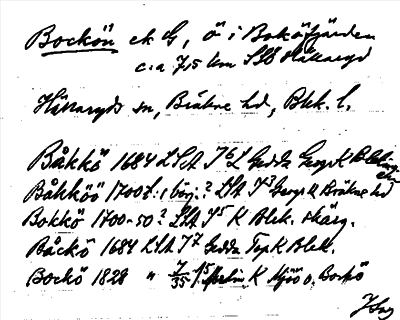 Bockön ek G, ö i Boköfjärden
c:a 7,5 km SSO Hällaryd
Hällaryds sn, Bräkne hd, Blek. l.
Båkkö 1684 LSA Gedda Geogr K Bleking
Båkköö 1700 t. i börj.? LSA Geogr K Bräkne hd
Bokkö 1700-50? LSA K Blek. skärg.
Båckö 1684 LSA Gedda Top K Blek.
Bockö 1828 " K Mjöö o. Bockö